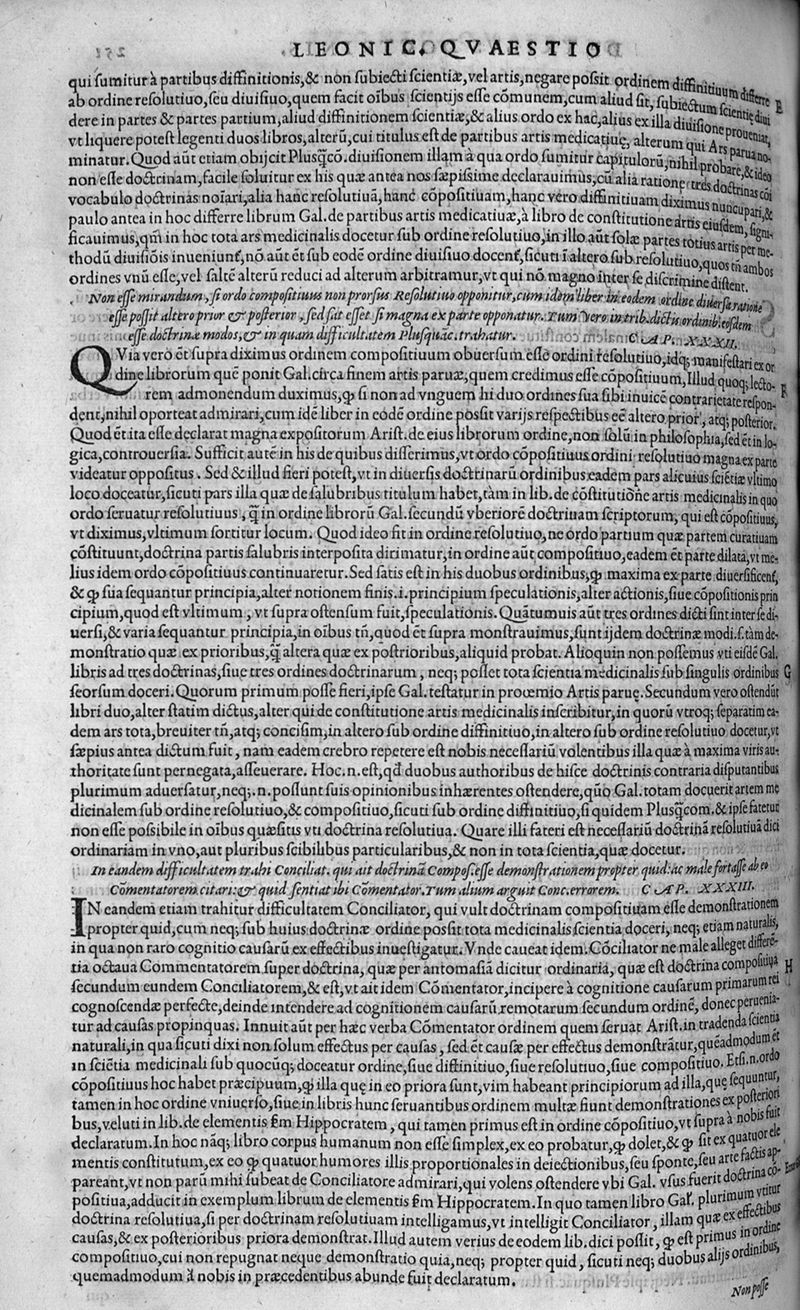 LEONIC. QVAESTIO
qui sumitur à partibus diffinitionis,& non subiecti scientiæ, vel artis, negare possit ordinem diffinitiuum differre
ab ordine resolutiuo, seu diuisiuo, quem facit oībus scientijs esse cōmunem, cum aliud sit, subiectum scientię diui
dere in partes & partes partium, aliud diffinitionem scientiæ,& alius ordo ex hac, alius ex illa diuisione proueniat,
vt liquere potest legenti duos libros, alterū, cui titulus est de partibus artis medicatiuę, alterum qui Ars parua no-
minatur. Quod aūt etiam obijcit Plusq̃cō. diuisionem illam à qua ordo sumitur capitulorū, nihil probare,& ideo
non esse doctrinam, facile soluitur ex his quæ antea nos sæpissime declarauimus, cū alia ratione tres doctrinas cōi
vocabulo doctrinas noīari, alia hanc resolutiuā, hanc cōpositiuam, hanc vero diffinitiuam diximus nuncupari,&
paulo antea in hoc differre librum Gal. de partibus artis medicatiuæ, à libro de constitutione artis eiusdem, signi-
ficauimus, qm̄ in hoc tota ars medicinalis docetur sub ordine resolutiuo, in illo aūt solæ partes totius artis per me-
thodū diuisiōis inueniunt̄, nō aūt ēt sub eodē ordine diuisiuo docent̄, sicuti ī altero sub resolutiuo, quos tn̄ ambos
ordines vnū esse, vel saltē alterū reduci ad alterum arbitramur, vt qui nō magno inter se discrimine distent.
Non esse mirandum, si ordo compositiuus non prorsus Resolutiuo opponitur, cum idem liber in eodem ordine diuersa ratione
esse possit altero prior & posterior, sed sat esset si magna ex parte opponatur. Tum vero in trib. dictis ordinib. eosdem
esse doctrinæ modos,& in quam difficultatem Plusquàc. trahatur. CAP. XXXII.
QVia vero ēt supra diximus ordinem compositiuum obuersum esse ordini resolutiuo, idq; manifestari ex or
dine librorum quē ponit Gal. circa finem artis paruæ, quem credimus esse cōpositiuum, Illud quoq; lecto-
rem admonendum duximus, ꝙ si non ad vnguem hi duo ordines sua sibi inuicē contrarietate respon-
dent, nihil oporteat admirari, cum idē liber in eodē ordine possit varijs respectibus eē altero prior, atq; posterior.
Quod ēt ita esse declarat magna expositorum Arist. de eius librorum ordine, non solū in philosophia, sed ēt in lo-
gica, controuersia. Sufficit autē in his de quibus differimus, vt ordo cōpositiuus ordini resolutiuo magna ex parte
videatur oppositus. Sed & illud fieri potest, vt in diuersis doctrinarū ordinibus eadem pars alicuius sciētiæ vltimo
loco doceatur, sicuti pars illa quæ de salubribus titulum habet, tàm in lib. de cōstitutiōne artis medicinalis in quo
ordo seruatur resolutiuus, q̃ in ordine librorū Gal. secundū vberiorē doctrinam scriptorum, qui est cōpositiuus,
vt diximus, vltimum sortitur locum. Quod ideo fit in ordine resolutiuo, ne ordo partium quæ partem curatiuam
cōstituunt, doctrina partis salubris interposita dirimatur, in ordine aūt compositiuo, eadem ēt parte dilata, vt me-
lius idem ordo cōpositiuus continuaretur. Sed satis est in his duobus ordinibus, ꝙ maxima ex parte diuersificent̄,
& ꝙ sua sequantur principia, alter notionem finis .i. principium speculationis, alter actionis, siue cōpositionis prin
cipium, quod est vltimum, vt supra ostensum fuit, speculationis. Quātumuis aūt tres ordines dicti sint inter se di-
uersi,& varia sequantur principia, in oībus tn̄, quod ēt supra monstrauimus, sunt ijdem doctrinæ modi .s. tàm de-
monstratio quæ ex prioribus, q̃ altera quæ ex postrioribus, aliquid probat. Alioquin non possemus vti eisdē Gal.
libris ad tres doctrinas, siue tres ordines doctrinarum, neq; posset tota scientia medicinalis sub singulis ordinibus G
seorsum doceri. Quorum primum posse fieri, ipse Gal. testatur in prooemio Artis paruę. Secundum vero ostendūt
libri duo, alter statim dictus, alter qui de constitutione artis medicinalis inscribitur, in quorū vtroq; separatim ea-
dem ars tota, breuiter tn̄, atq; concisim, in altero sub ordine diffinitiuo, in altero sub ordine resolutiuo docetur, vt
sæpius antea dictum fuit, nam eadem crebro repetere est nobis necessariū volentibus illa quæ à maxima viris au-
thoritate sunt pernegata, asseuerare. Hoc .n. est, qd̄ duobus authoribus de hisce doctrinis contraria disputantibus
plurimum aduersatur, neq; .n. possunt suis opinionibus inhærentes ostendere, quō Gal. totam docuerit artem me
dicinalem sub ordine resolutiuo,& compositiuo, sicuti sub ordine diffinitiuo, si quidem Plusq̃com. & ipse fatetur
non esse possibile in oībus quæsitis vti doctrina resolutiua. Quare illi fateri est necessariū doctrinā resolutiuā dici
ordinariam in vno, aut pluribus scibilibus particularibus,& non in tota scientia, quæ docetur.
In eandem difficultatem trahi Conciliat. qui ait doctrinā Compos. esse demonstrationem propter quid: ac male fortasse ab eo
Cōmentatorem citari: & quid sentiat ibi Cōmentator. Tum alium arguit Conc. errorem. CAP. XXXIII.
IN eandem etiam trahitur difficultatem Conciliator, qui vult doctrinam compositiuam esse demonstrationem
propter quid, cum neq; sub huius doctrinæ ordine possit tota medicinalis scientia doceri, neq; etiam naturalis,
in qua non raro cognitio causarū ex effectibus inuestigatur. Vnde caueat idem. Cōciliator ne male alleget differē-
tia octaua Commentatorem super doctrina, quæ per antomasiā dicitur ordinaria, quæ est doctrina compositiua H
secundum eundem Conciliatorem,& est, vt ait idem Cōmentator, incipere à cognitione causarum primarum rei
cognoscendæ perfecte, deinde intendere ad cognitionem causarū remotarum secundum ordinē, donec peruenia-
tur ad causas propinquas. Innuit aūt per hæc verba Cōmentator ordinem quem seruat Arist. in tradenda scientia
naturali, in qua sicuti dixi non solum effectus per causas, sed ēt causæ per effectus demonstrātur, quēadmodum et
in sciētia medicinali sub quocūq; doceatur ordine, siue diffinitiuo, siue resolutiuo, siue compositiuo. Etsi .n. ordo
cōpositiuus hoc habet præcipuum, ꝙ illa quę in eo priora sunt, vim habeant principiorum ad illa, quę sequuntur,
tamen in hoc ordine vniuerso, siue in libris hunc seruantibus ordinem multæ fiunt demonstrationes ex posteriori
bus, veluti in lib. de elementis fm̄ Hippocratem, qui tamen primus est in ordine cōpositiuo, vt supra à nobis fuit
declaratum. In hoc nāq; libro corpus humanum non esse simplex, ex eo probatur, ꝙ dolet,& ꝙ sit ex quatuor ele
mentis constitutum, ex eo ꝙ quatuor humores illis proportionales in deiectionibus, seu sponte, seu arte factis ap-
pareant, vt non parū mihi subeat de Conciliatore admirari, qui volens ostendere vbi Gal. vsus fuerit doctrina cō-
positiua, adducit in exemplum librum de elementis fm̄ Hippocratem. In quo tamen libro Gal. plurimum vtitur
doctrina resolutiua, si per doctrinam resolutiuam intelligamus, vt intelligit Conciliator, illam quæ ex effectibus
causas,& ex posterioribus priora demonstrat. Illud autem verius de eodem lib. dici possit, ꝙ est primus in ordine
compositiuo, cui non repugnat neque demonstratio quia, neq; propter quid, sicuti neq; duobus alijs ordinibus,
quemadmodum à nobis in præcedentibus abunde fuit declaratum.
Non posse